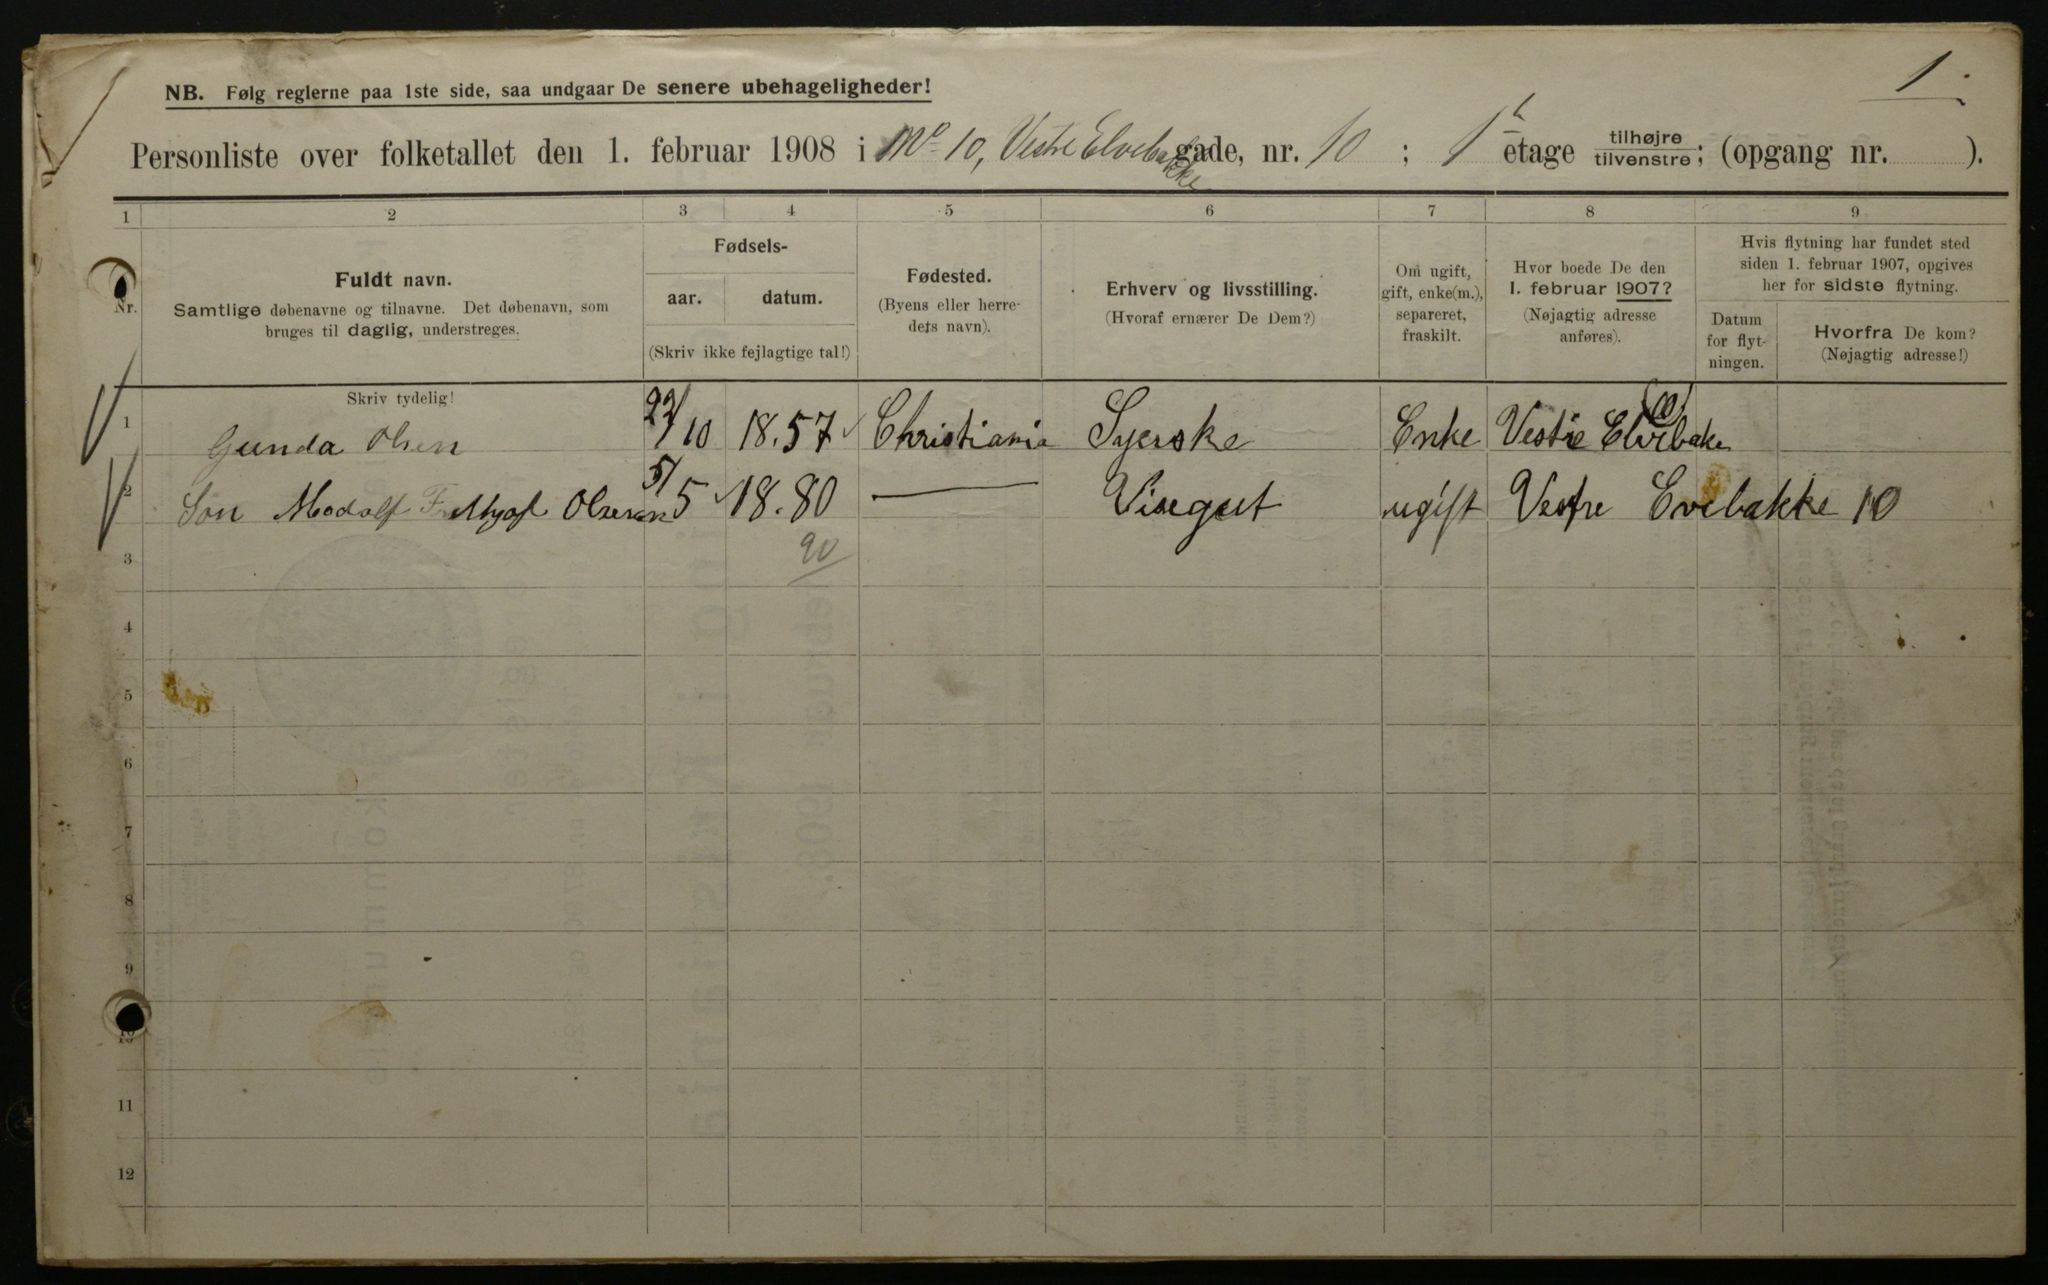 1.
NB. Følg reglerne paa 1ste side, saa undgaar De senere ubehageligheder!
Personliste over folketallet den 1. februar 1908 i No 10, Vestre Elvebakke gade, nr. 10 ; 1ste etage tilhøjre tilvenstre; (opgang nr. ).
1 2 3 4 5 6 7 8 9
Nr.
Fuldt navn.
Samtlige døbenavne og tilnavne. Det døbenavn, som
bruges til daglig, understreges.
Fødsels-
aar. datum.
(Skriv ikke fejlagtige tal!)
Fødested.
(Byens eller herre-
dets navn).
Erhverv og livsstilling.
(Hvoraf ernærer De Dem?)
Om ugift,
gift, enke(m.),
separeret,
fraskilt.
Hvor boede De den
1. februar 1907?
(Nøjagtig adresse
anføres).
Hvis flytning har fundet sted
siden 1. februar 1907, opgives
her for sidste flytning.
Datum
for flyt-
ningen.
Hvorfra De kom?
(Nøjagtig adresse!)
Skriv tydelig!
1 Gunda Olsen 22/10 18.57 Christiania Syerske Enke Vestre Elvebake (10)
2 Søn Modolf Olsen 5/5 18.80 — Visegut ugift Vestre Evebakke 10
90
3
4
5
6
7
8
9
10
11
12